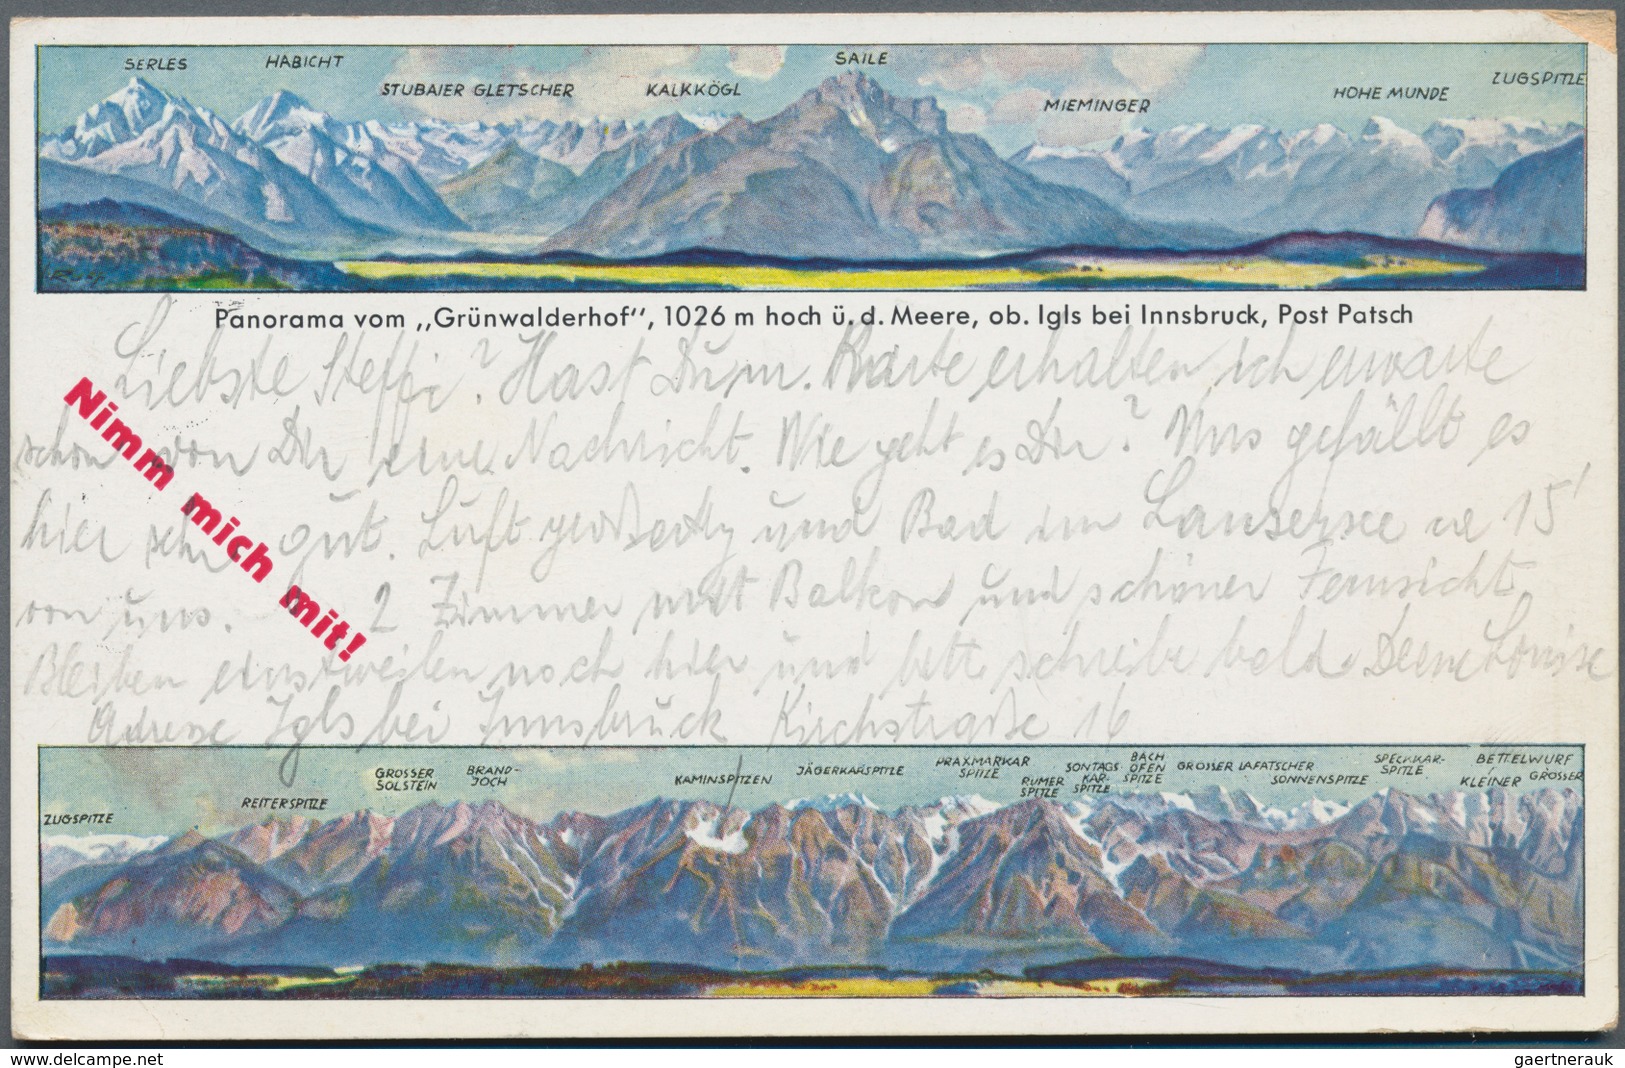 SERLES
HABICHT
SAILE
STUBAIER GLETSCHER
KALKKÖGL
MIEMINGER
HOHE MUNDE
ZUGSPITZE
Panorama vom „Grünwalderhof“, 1026 m hoch ü. d. Meere, ob. Igls bei Innsbruck, Post Patsch
Nimm mich mit!
Liebste Steffi? Hast Du m. Karte erhalten ich erwarte
schon von Dir eine Nachricht. Wie geht es Dir? Uns gefällt es
hier sehr gut. Luft und Bad im Lansersee 15'
von uns. 2 Zimmer mit Balkon und schöner Fernsicht
Bleiben einstweilen noch hier und bitt schreibe bald. Deine Louise
Adresse Igls bei Innsbruck Kirchstraße 16
ZUGSPITZE
REITERSPITZE
GROSSER
SOLSTEIN
BRAND-
JOCH
KAMINSPITZEN
JÄGERKARSPITZE
PRAXMARKAR
SPITZE
RUMER
SPITZE
SONTAGS
KAR-
SPITZE
BACH
OFEN
SPITZE
GROSSER LAFATSCHER
SONNENSPITZE
SPECKKAR-
SPITZE
BETTELWURF
KLEINER GROSSER
www.delcampe.net
gaertnerauk